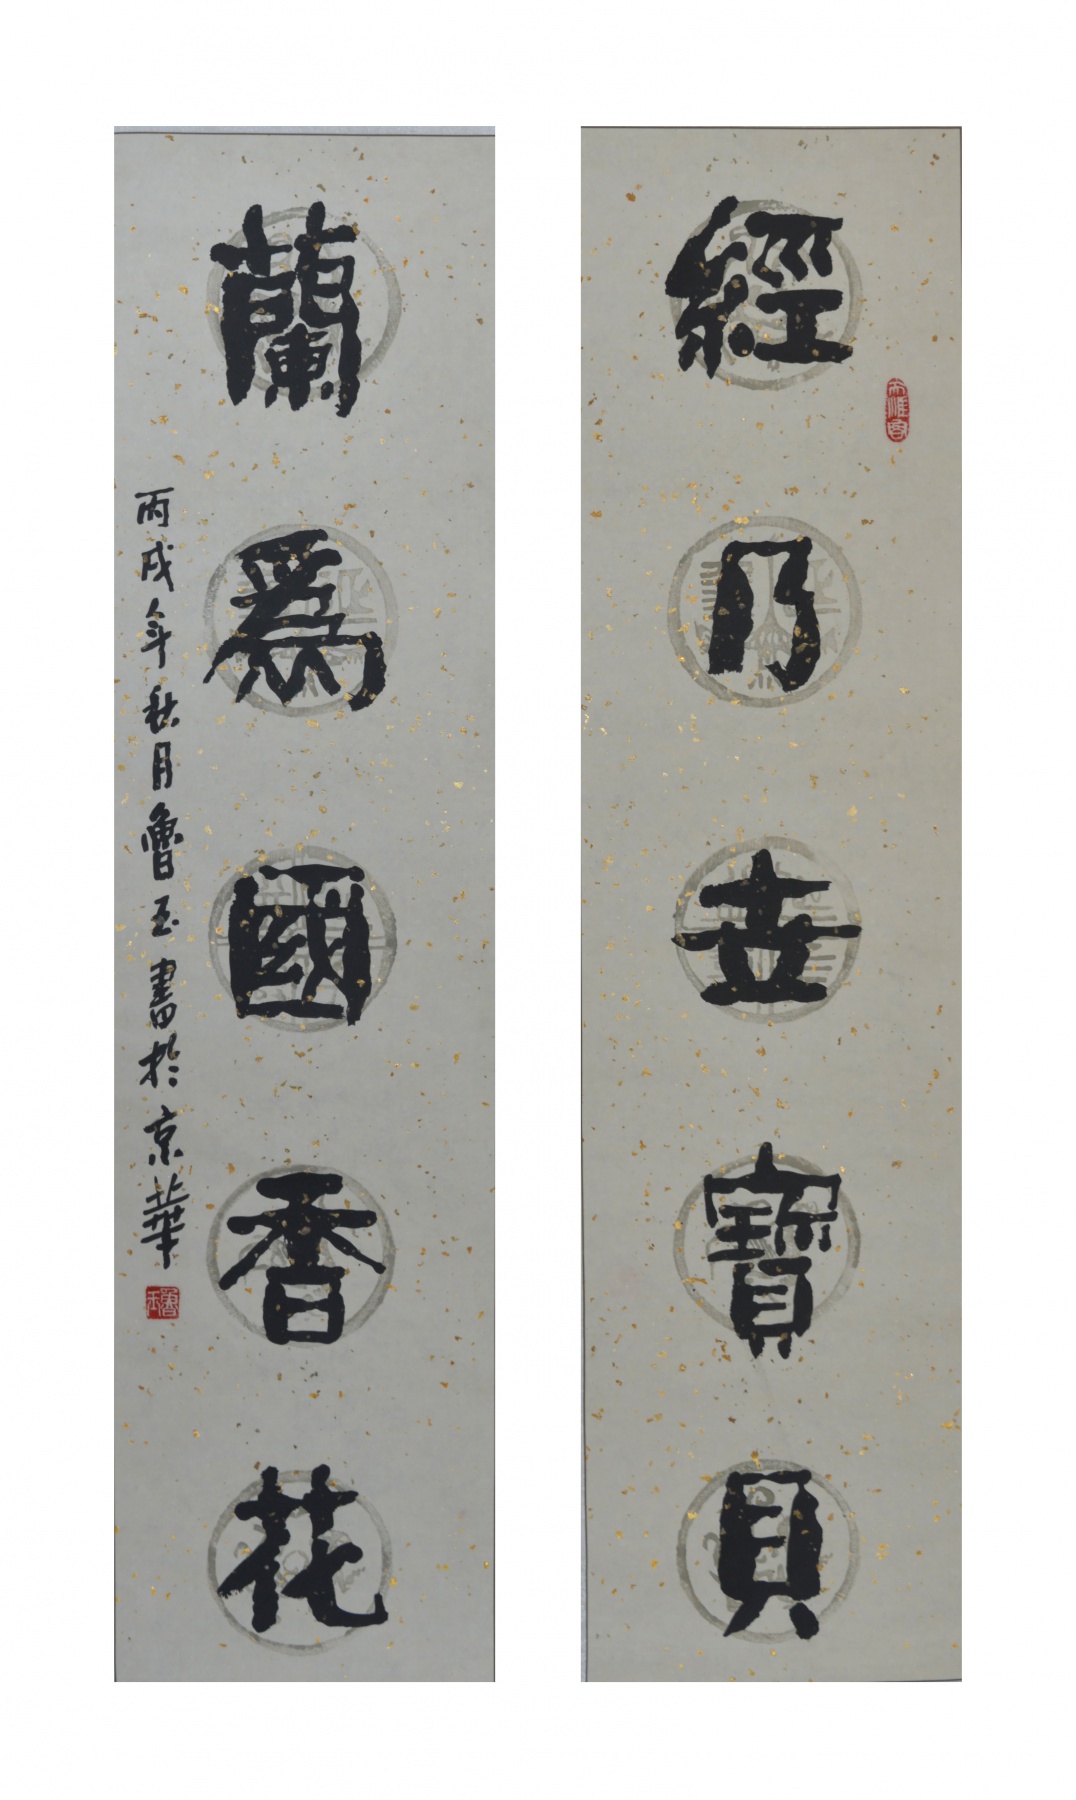 經乃世寶貝
蘭為國香花
丙戌年秋月魯玉書於京華
魯玉